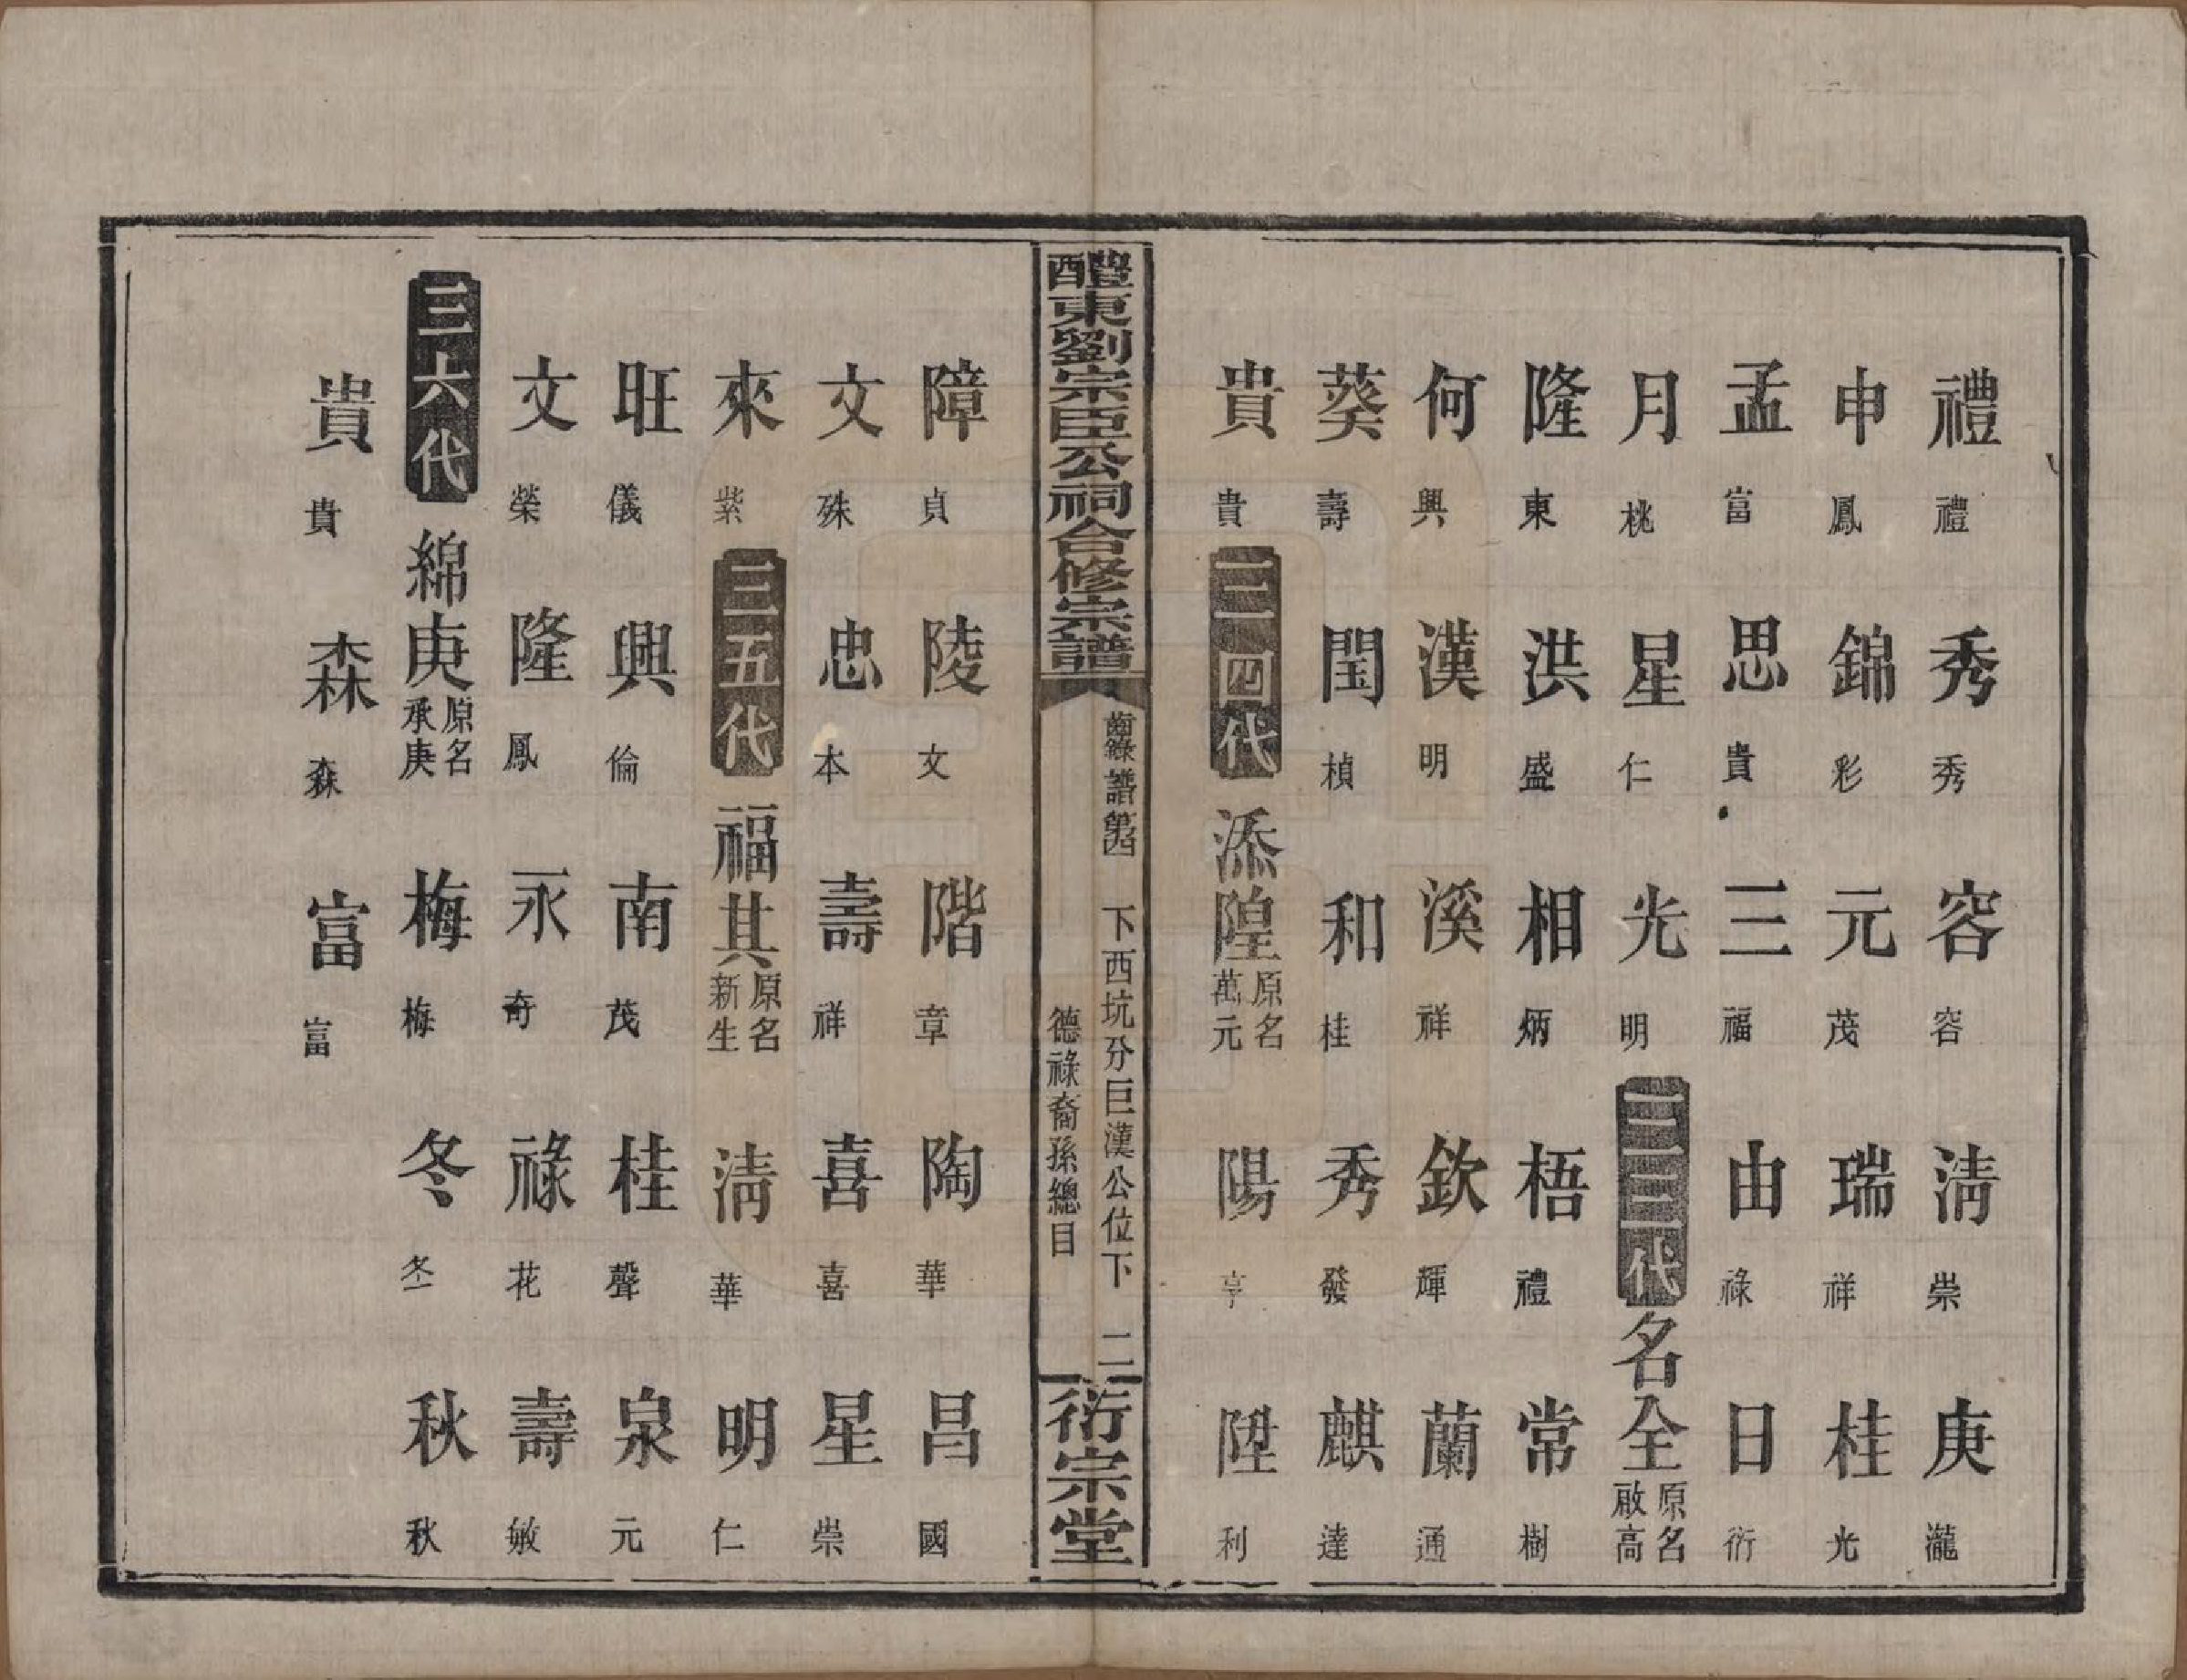 禮禮 秀秀 容容 淸崇 庚瀧
申鳳 錦彩 元茂 瑞祥 桂光
孟富 思貴 三福 由祿 日衍
月桃 星仁 光明 三三代 名全原名啟高
隆東 洪盛 相炳 梧禮 常樹
何興 漢明 溪祥 欽輝 蘭通
葵壽 閏楨 和桂 秀發 麒達
貴貴 三四代 添隍原名萬元 陽亨 陞利
醴東劉宗臣公祠合修宗譜 齒錄譜第四 下西坑分巨漢公位下德祿裔孫總目 二 衍宗堂
障貞 陵文 階章 陶華 昌國
文殊 忠本 壽祥 喜喜 星崇
來紫 三五代 福其原名新生 淸華 明仁
旺儀 興倫 南茂 桂聲 泉元
文榮 隆鳳 永奇 祿花 壽敏
三六代 綿庚原名承庚 梅梅 冬冬 秋秋
貴貴 森森 富富